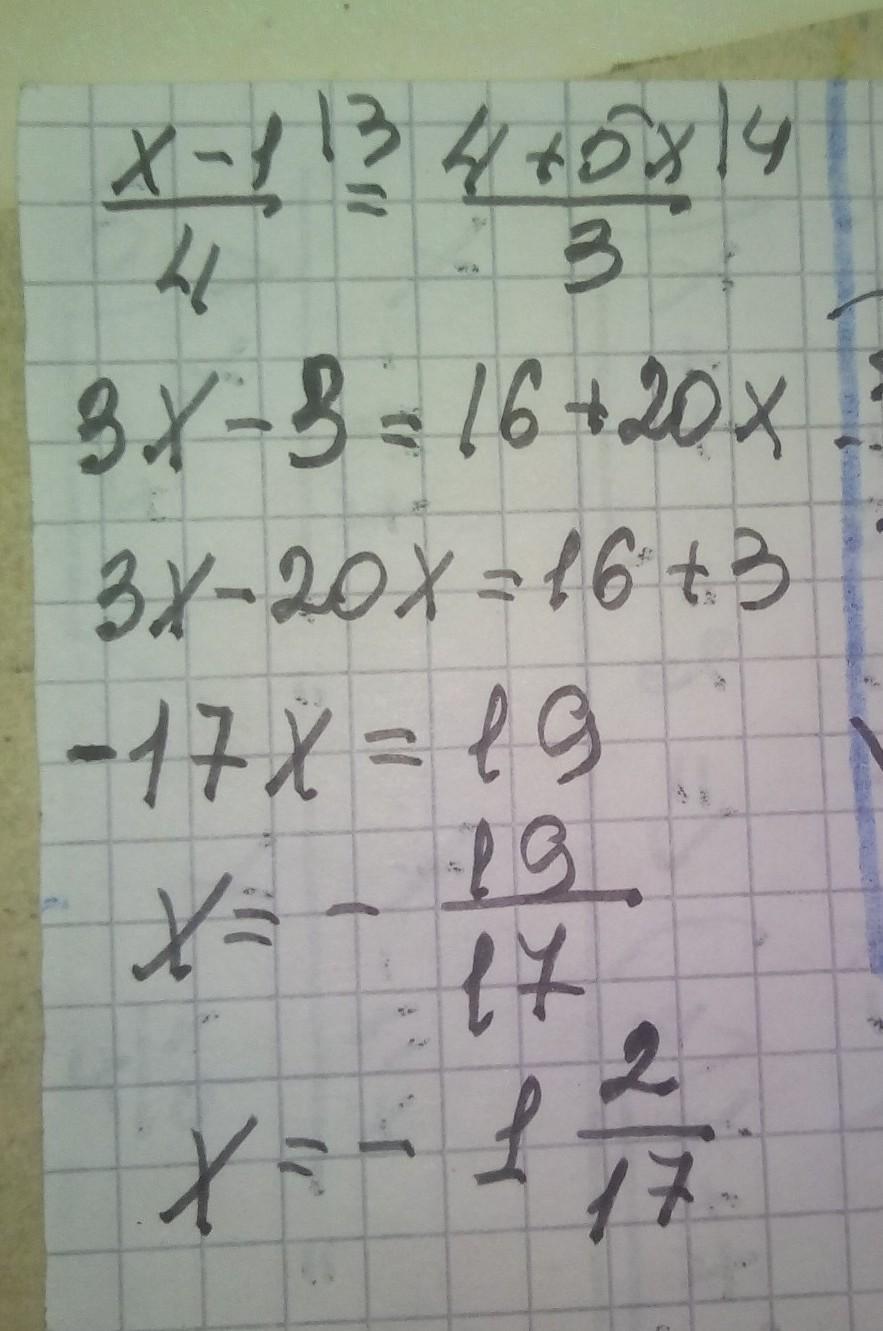 x-1|3 / 4 = 4+5x|4 / 3
3x-3=16+20x
3x-20x=16+3
-17x=19
x=-19/17
x=-1 2/17